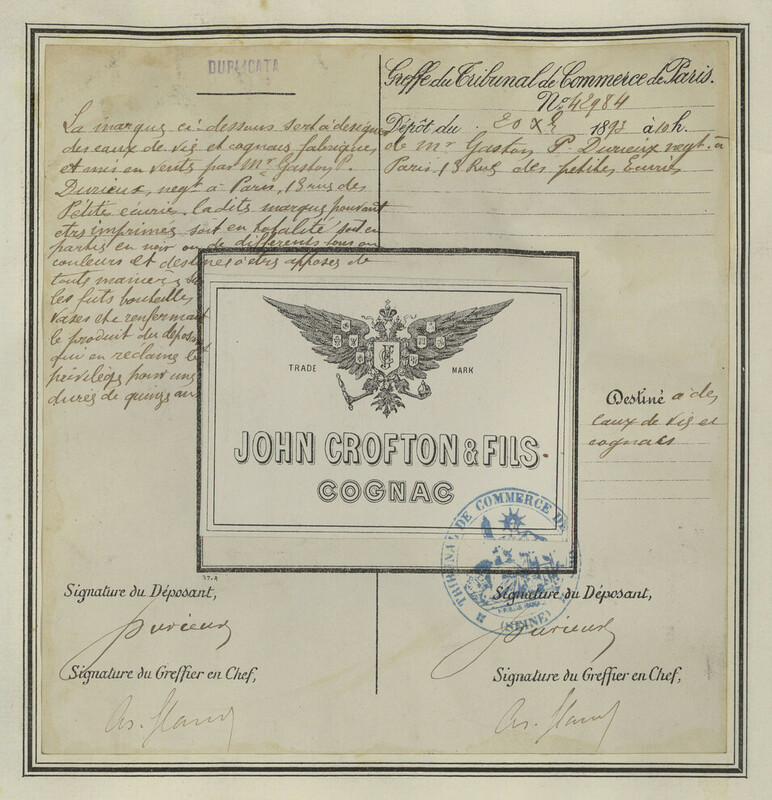 DUPLICATA
La marque ci-dessous sert à désigner
des eaux de vie et cognacs fabriqués
et mis en vente par Mr Gaston P.
Durieux, negt à Paris, 13 rue des
Petites écuries. ladite marque pouvant
être imprimée soit en totalité soit en
partie en noir ou de différents tons ou
couleurs et destinée à être apposée de
toute manière
les fûts bouteilles
vases etc renfermant
le produit du dépos
qui en réclame le
privilège pour une
durée de quinze ans
Greffe du Tribunal de Commerce de Paris.
No 42984
Dépôt du 20 Xbre 1893 à 10 h.
de Mr Gaston P Durieux negt. à
Paris 13 Rue des petites Ecuries
TRADE MARK
JOHN CROFTON & FILS
COGNAC
Destiné à des
eaux de vie et
cognacs
TRIBUNAL DE COMMERCE DE
(SEINE)
37.A
Signature du Déposant,
Durieux
Signature du Greffier en Chef,
Signature du Déposant,
Durieux
Signature du Greffier en Chef,